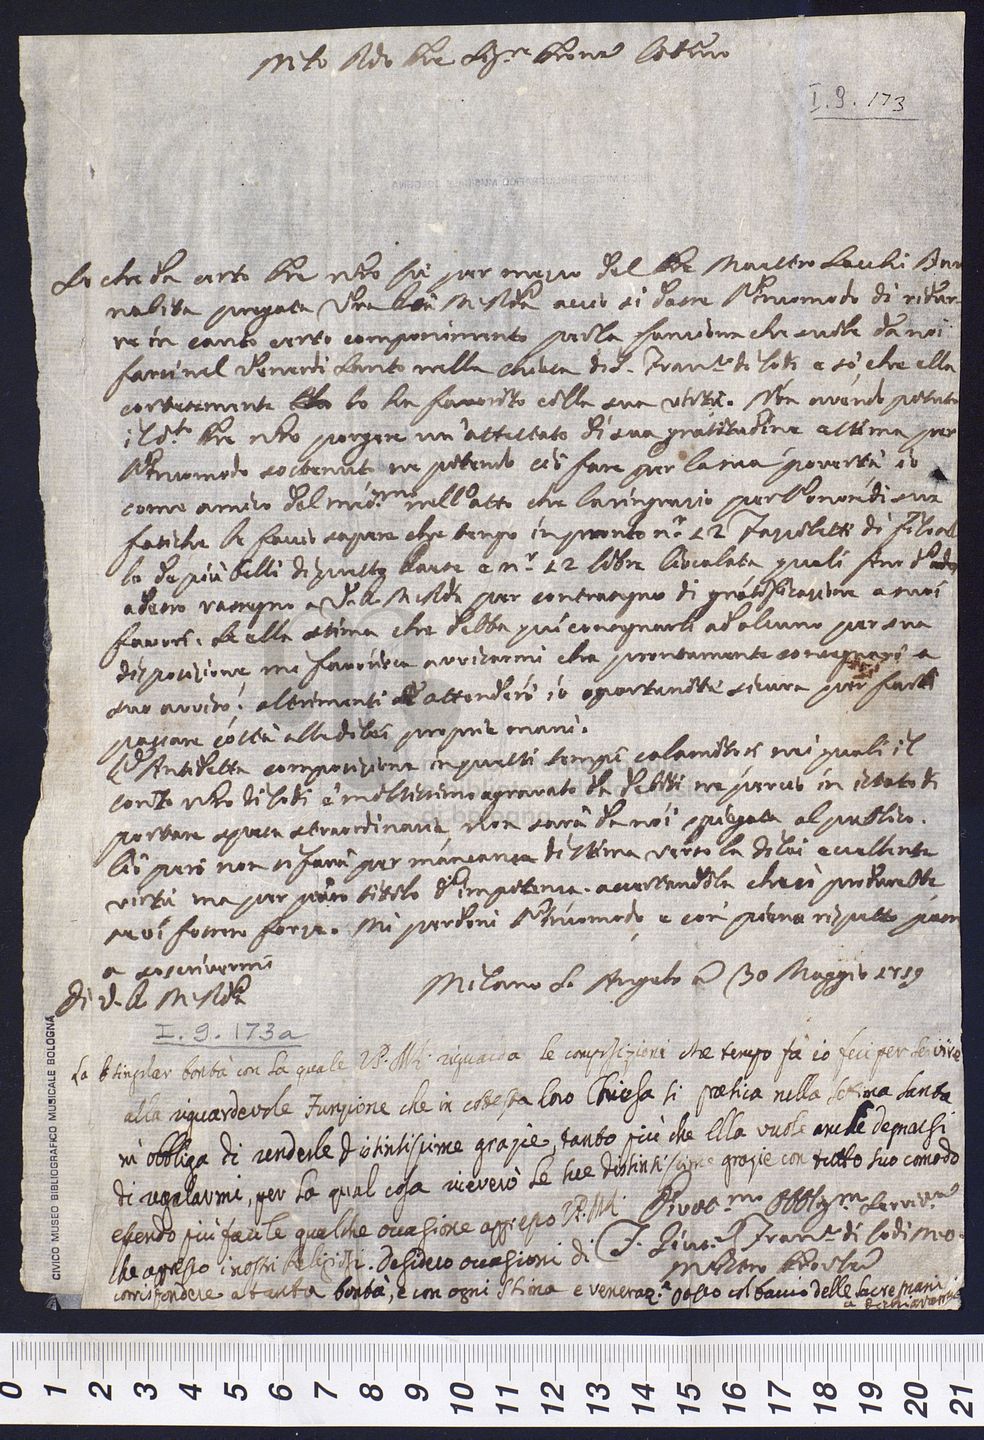 Mto Rdo Pre Sigre Prone
I. 9. 173
So che da certo Pre nro fù per mezzo del Pre Maestro Sacchi Bar
nabita pregata Vra Mto Rda acciò si dasse l'incomodo di ridur-
re in canto certo componimento per la funzione che suole da noi
farsi nel Venerdì Santo nella chiesa di S. Franco di Lodi e sò che ella
cortesemente lo ha favorito colla sua virtù. Non avendo potuto
il do Pre nro porgere un'attestato di sua gratitudine e stima per
l'incomodo sostenuto ne potendo ciò fare per la sua povertà io
come amico del medmo nell'atto che la ringrazio per l'onore di sue
fatiche le faccio sapere che tengo in pronto n.º 12 Fazioletti di Filosel
la de più belli di queste parti e n.º 12 libre Ciocolata quali fino d'
adesso rassegno a V. R. M. Rda per contrasegno di gratificazione a suoi
favori. Se ella stima che debba qui consegnarli ad alcuno per sua
disposizione me favorisca avvisarmi che prontamente consegnarò a
suo avviso; altrimenti attenderò io oportunità sicura per farli
passare costà alle di lei proprie mani.
L'Antidetta composizione in questi tempi calamitosi nei quali il
conto nro di Lodi è moltissimo agravato da debiti ne perciò in istato di
portare spesa straordinaria non sarà da noi spiegata al publico.
Ciò però non si farà per mancanza di stima verso la di lei eccellente
virtù ma per puro titolo d'impotenza. accertandola che si produrebbe
se vi fossero forze. Mi perdoni l'incomodo e con pieno rispetto passo
a soscrivermi
Di V. R. M. Rda
Milano S. Angelo a 30 Maggio 1759
I. 9. 173a
La singolar bontà con la quale V.P.M.R. riguarda le composizioni che tempo fa io feci per servire
alla riguardevole Funzione che in cotesta loro Chiesa si pratica nella Settima Santa
mi obbliga di renderle distintissime grazie, tanto più che Ella vuole anche degnarsi
di regalarmi, per la qual cosa riceverò le sue distintissime grazie con tutto suo comodo
essendo più facile qualche occasione appresso V.P.M.R.
che appresso i nostri Religiosi. Desidero occasioni di
corrispondere a tanta bontà, e con ogni stima e veneraz.e passo col bacio delle sacre mani
a dichiararmi
Divotmo Obblgmo Servitre
F. Franco di Lodi Mo.
CIVICO MUSEO BIBLIOGRAFICO MUSICALE BOLOGNA
0 1 2 3 4 5 6 7 8 9 10 11 12 13 14 15 16 17 18 19 20 21